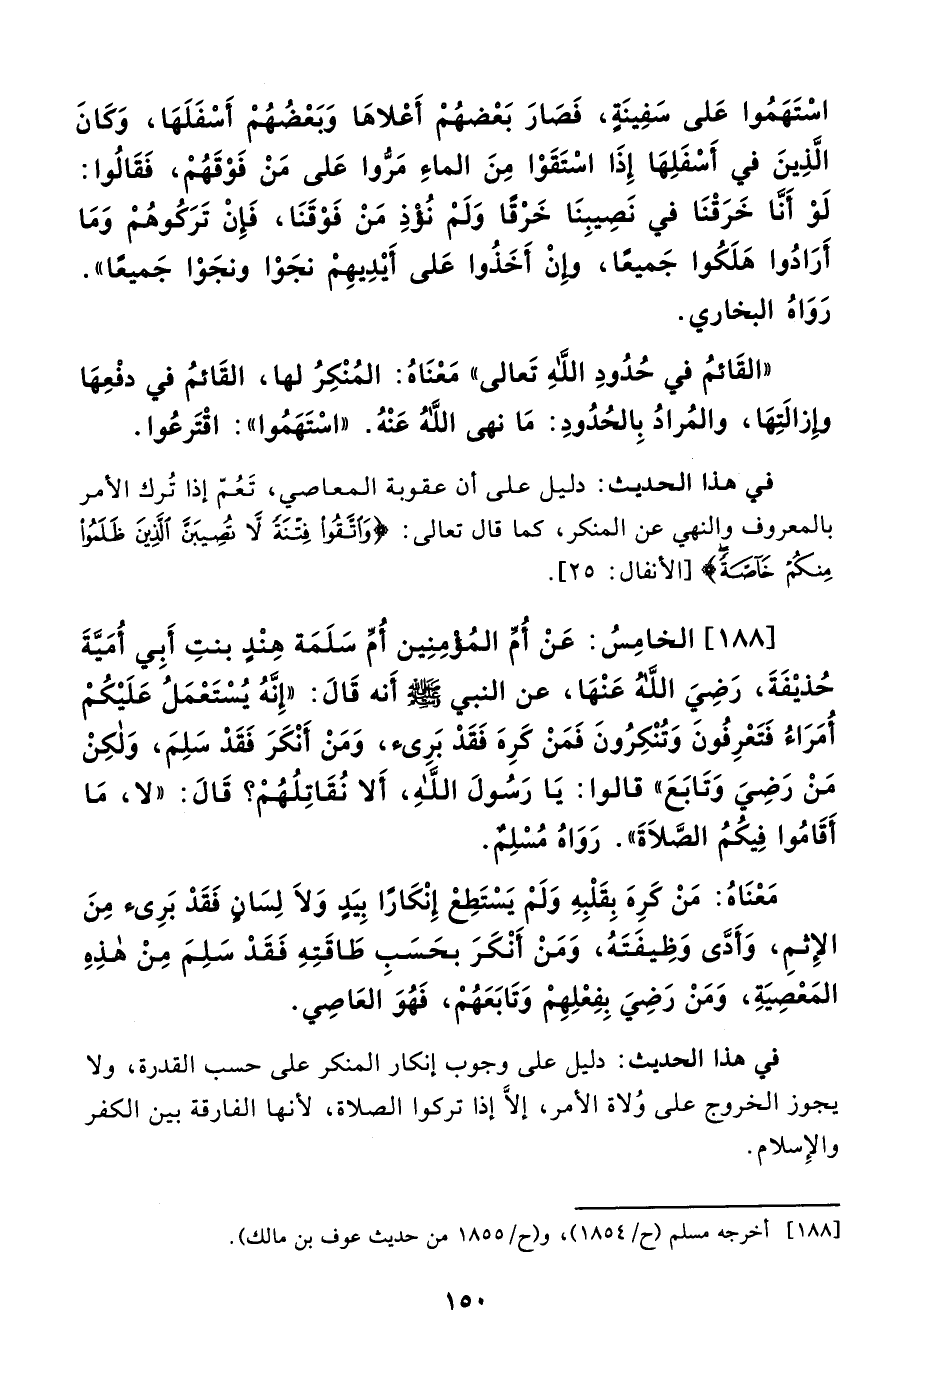 اسْتَهَمُوا عَلى سَفِينَةٍ، فَصَارَ بَعْضهُمْ أَعْلاهَا وَبَعْضُهُمْ أَسْفَلَهَا، وَكَانَ
الَّذِينَ في أَسْفَلِهَا إِذَا اسْتَقَوْا مِنَ الماءِ مَرُّوا عَلى مَنْ فَوْقَهُمْ، فَقَالُوا:
لَوْ أَنَّا خَرَقْنَا في نَصِيبِنَا خَرْقًا وَلَمْ نُؤْذِ مَنْ فَوْقَنَا، فَإِنْ تَرَكُوهُمْ وَمَا
أَرَادُوا هَلَكُوا جَميعًا، وإِنْ أَخَذُوا عَلى أَيْدِيهِمْ نجَوْا ونجَوْا جَميعًا».
رَوَاهُ البخاري.
«القَائمُ في حُدُودِ اللَّهِ تَعالى» مَعْنَاهُ: المُنْكِرُ لها، القَائمُ في دفْعِهَا
وإِزالَتِهَا، والمُرادُ بِالحُدُودِ: مَا نهى اللَّهُ عَنْهُ. «اسْتَهَمُوا»: اقْتَرعُوا.
في هذا الحديث: دليل على أن عقوبة المعاصي، تَعُمّ إذا تُرك الأمر
بالمعروف والنهي عن المنكر، كما قال تعالى: ﴿وَٱتَّقُوا۟ فِتْنَةً لَّا تُصِيبَنَّ ٱلَّذِينَ ظَلَمُوا۟
مِنكُمْ خَآصَّةً﴾ [الأنفال: ٢٥].
[١٨٨] الخامِسُ: عَنْ أُمِّ المُؤْمِنِين أُمِّ سَلَمَة هِنْدٍ بنتِ أَبي أُمَيَّةَ
حُذيْفَةَ، رَضِيَ اللَّهُ عَنْهَا، عن النبي ﷺ أنه قَالَ: «إِنَّهُ يُسْتَعْمَلُ عَلَيْكُمْ
أُمَرَاءُ فَتَعْرِفُونَ وَتُنْكِرُونَ فَمَنْ كَرِهَ فَقَدْ بَرِىء، وَمَنْ أَنْكَرَ فَقَدْ سَلِمَ، وَلٰكِنْ
مَنْ رَضِيَ وَتَابَعَ» قالوا: يَا رَسُولَ اللَّهِ، أَلا نُقَاتِلُهُمْ؟ قَالَ: «لا، مَا
أَقَامُوا فِيكُمُ الصَّلاَةَ». رَوَاهُ مُسْلِمٌ.
مَعْنَاهُ: مَنْ كَرِهَ بِقَلْبِهِ وَلَمْ يَسْتَطِعْ إِنْكَارًا بِيَدٍ وَلاَ لِسَانٍ فَقَدْ بَرِىء مِنَ
الإِثمِ، وَأَدَّى وَظِيفَتَهُ، وَمَنْ أَنْكَرَ بحَسَبِ طَاقَتِهِ فَقَدْ سَلِمَ مِنْ هٰذِهِ
المَعْصِيَةِ، وَمَنْ رَضِيَ بِفِعْلِهِمْ وَتَابَعَهُمْ، فَهُوَ العَاصِي.
في هذا الحديث: دليل على وجوب إنكار المنكر على حسب القدرة، ولا
يجوز الخروج على وُلاة الأمر، إلاَّ إذا تركوا الصلاة، لأنها الفارقة بين الكفر
والإِسلام.
[١٨٨] أخرجه مسلم (ح/ ١٨٥٤)، و(ح/ ١٨٥٥ من حديث عوف بن مالك).
١٥٠